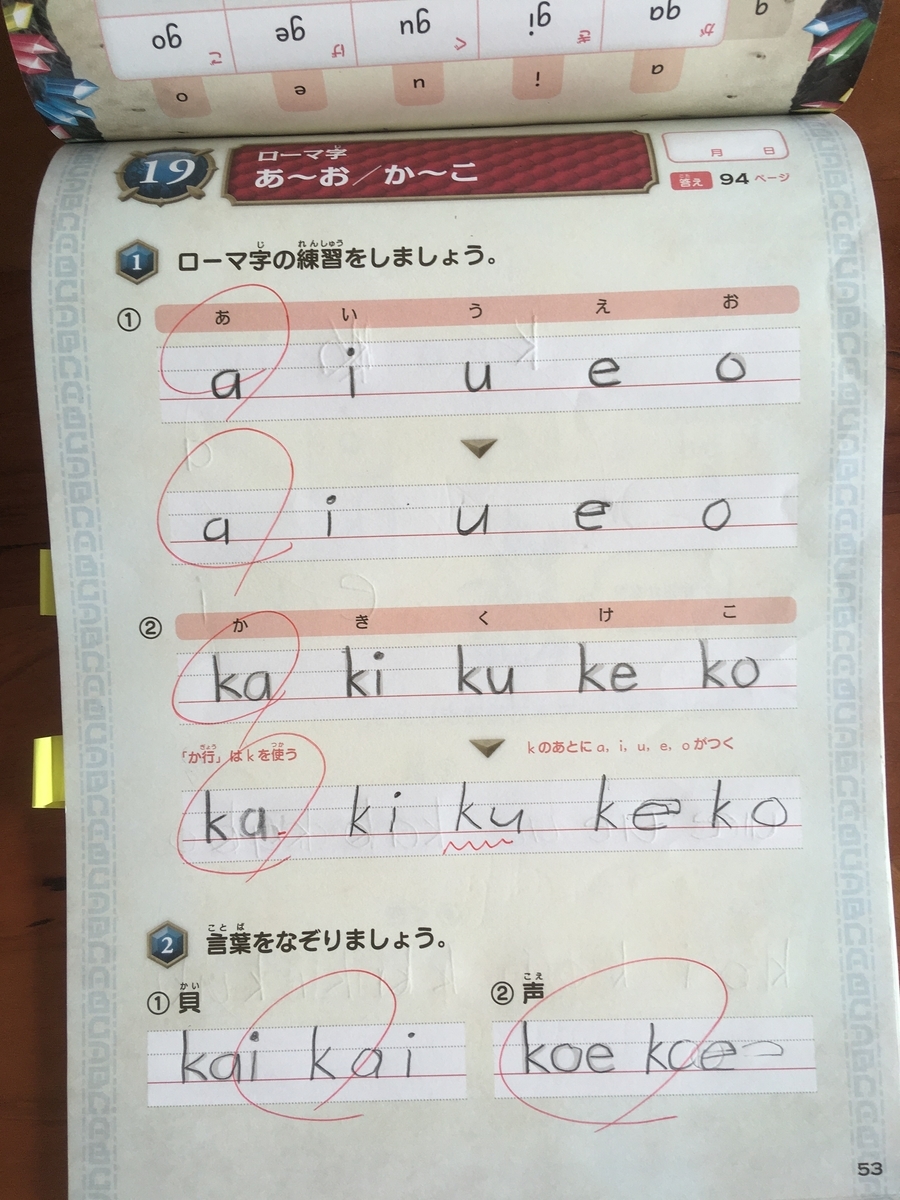 go ge gu gi ga
ご げ ぐ ぎ が
o e u i a
19
ローマ字 じ
あ〜お/か〜こ
月 日
答え こた 94 ページ
1 ローマ字の練習をしましょう。
じ れんしゅう
① あ い う え お
a i u e o
a i u e o
② か き く け こ
ka ki ku ke ko
「か行」はkを使う
ぎょう つか
kのあとに a, i, u, e, o がつく
ka ki ku ke ko
2 言葉をなぞりましょう。
ことば
① 貝 かい
kai kai
② 声 こえ
koe koe
53